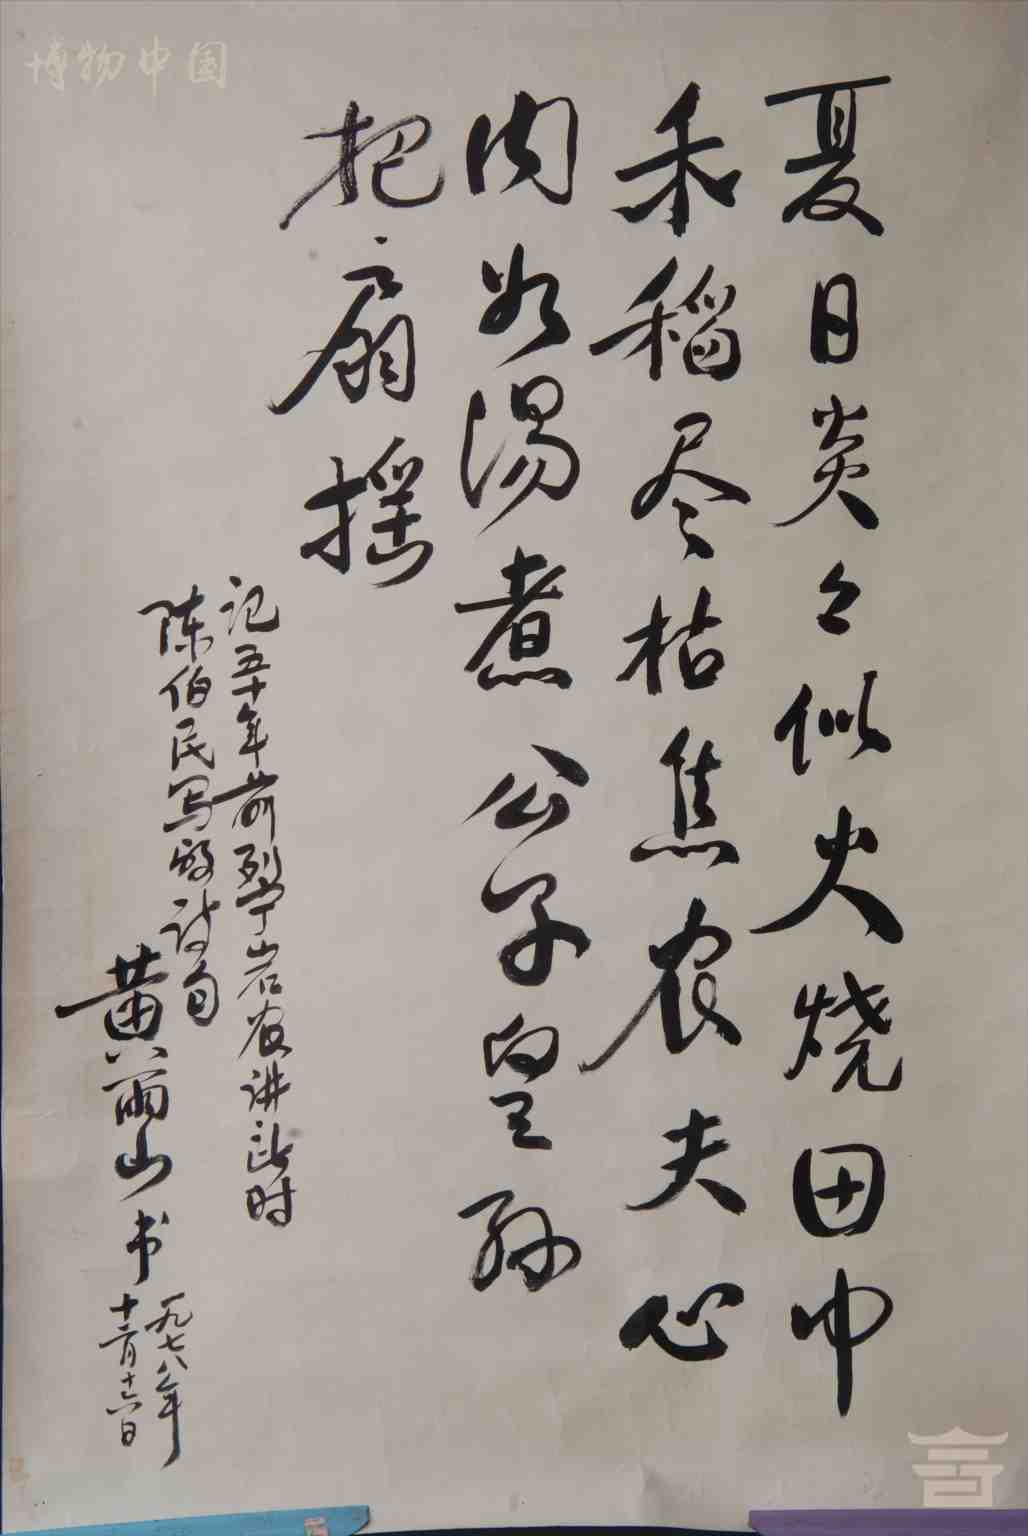 夏日炎々似火烧田中
禾稻尽枯焦农夫心
内如汤煮公子皇孙
把扇摇
记五十年前列宁岩农讲所时
陈伯民写的诗句
黄雨山书
一九七八年
十二月十二日
博物中国